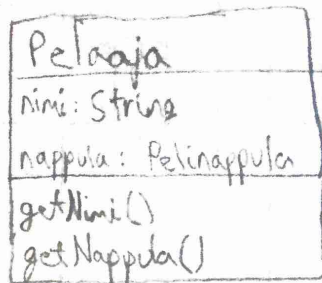 Pelaaja
nimi: String
nappula: Pelinappula
getNimi()
getNappula()